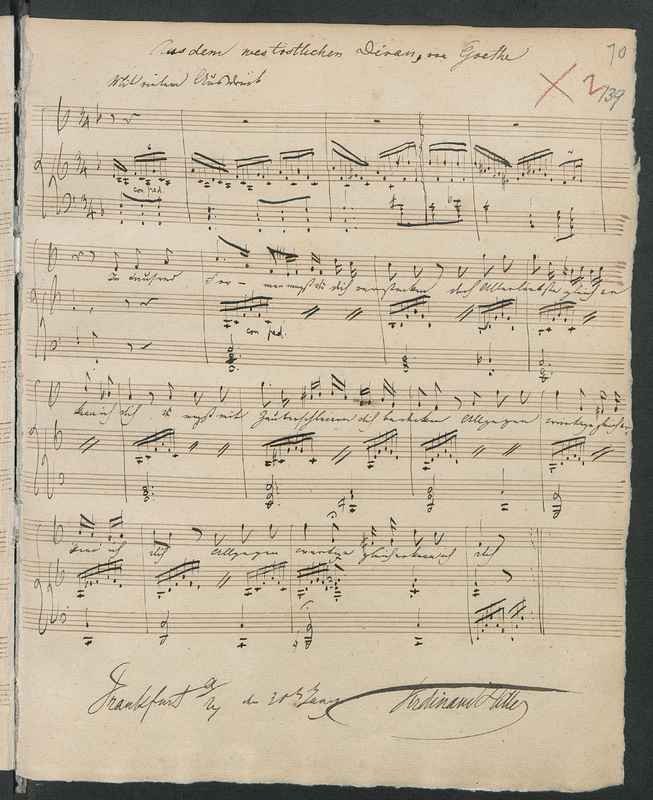 Aus dem westöstlichen Divan, von Goethe
70
2
139
Mit Ausdruck
con ped.
In tausend For- men magst du dich verstecken doch Allerliebste gleich er
con ped.
kenn ich dich du magst mit Zauberschleiern dich bedecken Allgegen wärtige gleich er
kenn ich dich Allgegen wärtige gleich erkenn ich dich
Frankfurt den 20ten Ferdinand Hiller